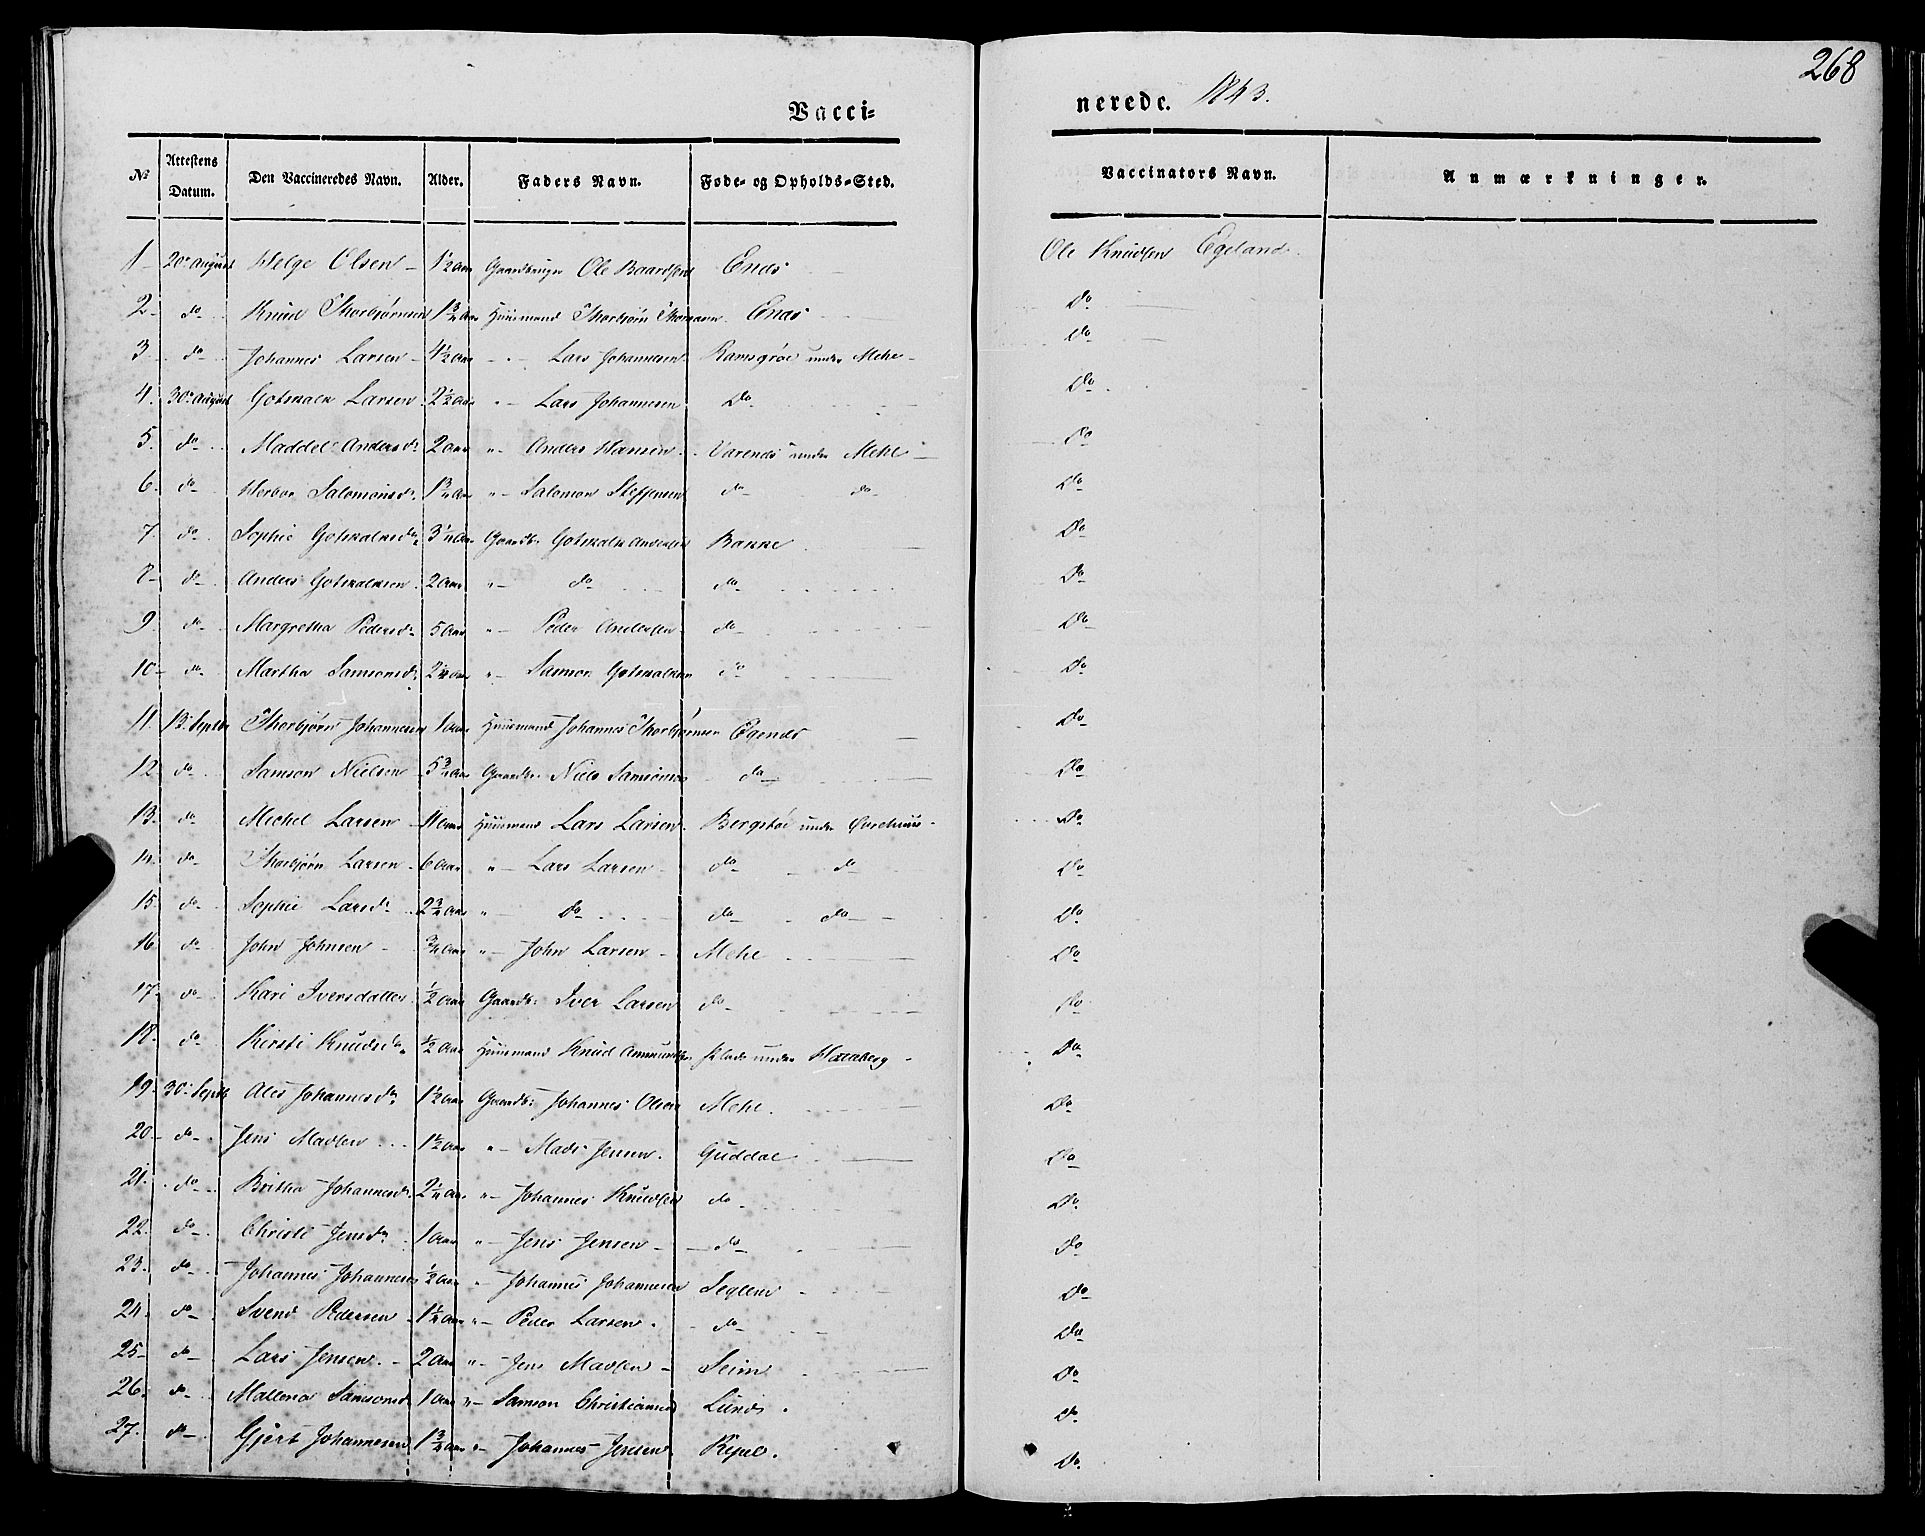 268
Vacci= nerede. 1843.
No Attestens Datum. Den Vaccineredes Navn. Alder. Faders Navn. Føde- og Opholds-Sted. Vaccinators Navn. Anmærkninger.
1 20 August Helge Olsen 1½ Aar Gaardbruger Ole Baardsen Enæs Ole Knudsen Egeland
2 do Knud Thorbjørnsen 1¾ Aar Huusmand Thorbjørn Enæs Do
3 do Johannes Larsen 4½ Aar " Lars Johannesen Ramsgrøe under Mehl Do
4. 30 August Gotskalk Larsen 2½ Aar " Lars Johannesen Do Do
5. do Maddel Andersdr 2 Aar " Anders Hansen under Mehl Do
6. do Herbor Salomonsdr 1¾ Aar " Salomon Steffensen do do Do
7. do Sophie Gotskalksdr 3¼ Aar Gaardb: Gotskalk Andersen Bakke Do
8 do Anders Gotskalksen 2 Aar " do do Do
9 do Margretha Pedersdr 5 Aar " Peder Andersen do Do
10 do Martha Samsonsdr 2¼ Aar " Samson Gotskalksen do Do
11. 13 Septbr Thorbjørn Johannesen 1 Aar Huusmand Johannes Thorbjørnsen Egenæs Do
12 do Samson Nielsen 5¾ Aar Gaardbr. Niels Samsonsen do Do
13. do Michel Larsen 11 Aar Huusmand Lars Larsen Bergstøe under Øvrehuus Do
14. do Thorbjørn Larsen 6 Aar " Lars Larsen do do Do
15. do Sophie Larsdr 2¾ Aar " do do do Do
16 do John Johnsen ¾ Aar " John Larsen Mehl Do
17. do Kari Iversdatter ½ Aar Gaardb: Iver Larsen do Do
18. do Kirsti Knudsdr ½ Aar Huusmand Knud Ammundsen under Do
19. 30 Septbr Ales Johannesdr 1½ Aar Gaardb: Johannes Olsen Mehl. Do
20 do Jens Madsen 1½ Aar " Mads Jensen. Guddal Do
21. do Britha Johannesdr 2¼ Aar " Johannes Knudsen do Do
22. do Christi Jensdr 1 Aar " Jens Jensen do Do
23. do Johannes Johannesen ½ Aar " Johannes Johannesen Seglem Do
24. do Svend Pedersen 1¼ Aar " Peder Larsen. do Do
25 do Lars Jensen. 2 Aar " Jens Madsen Seim Do
26. do Mallena Samsonsdr 1 Aar " Samson Christiansen Lunde. Do
27. do Gjert Johannesen 1¾ Aar " Johannes Jensen. Ripel. Do